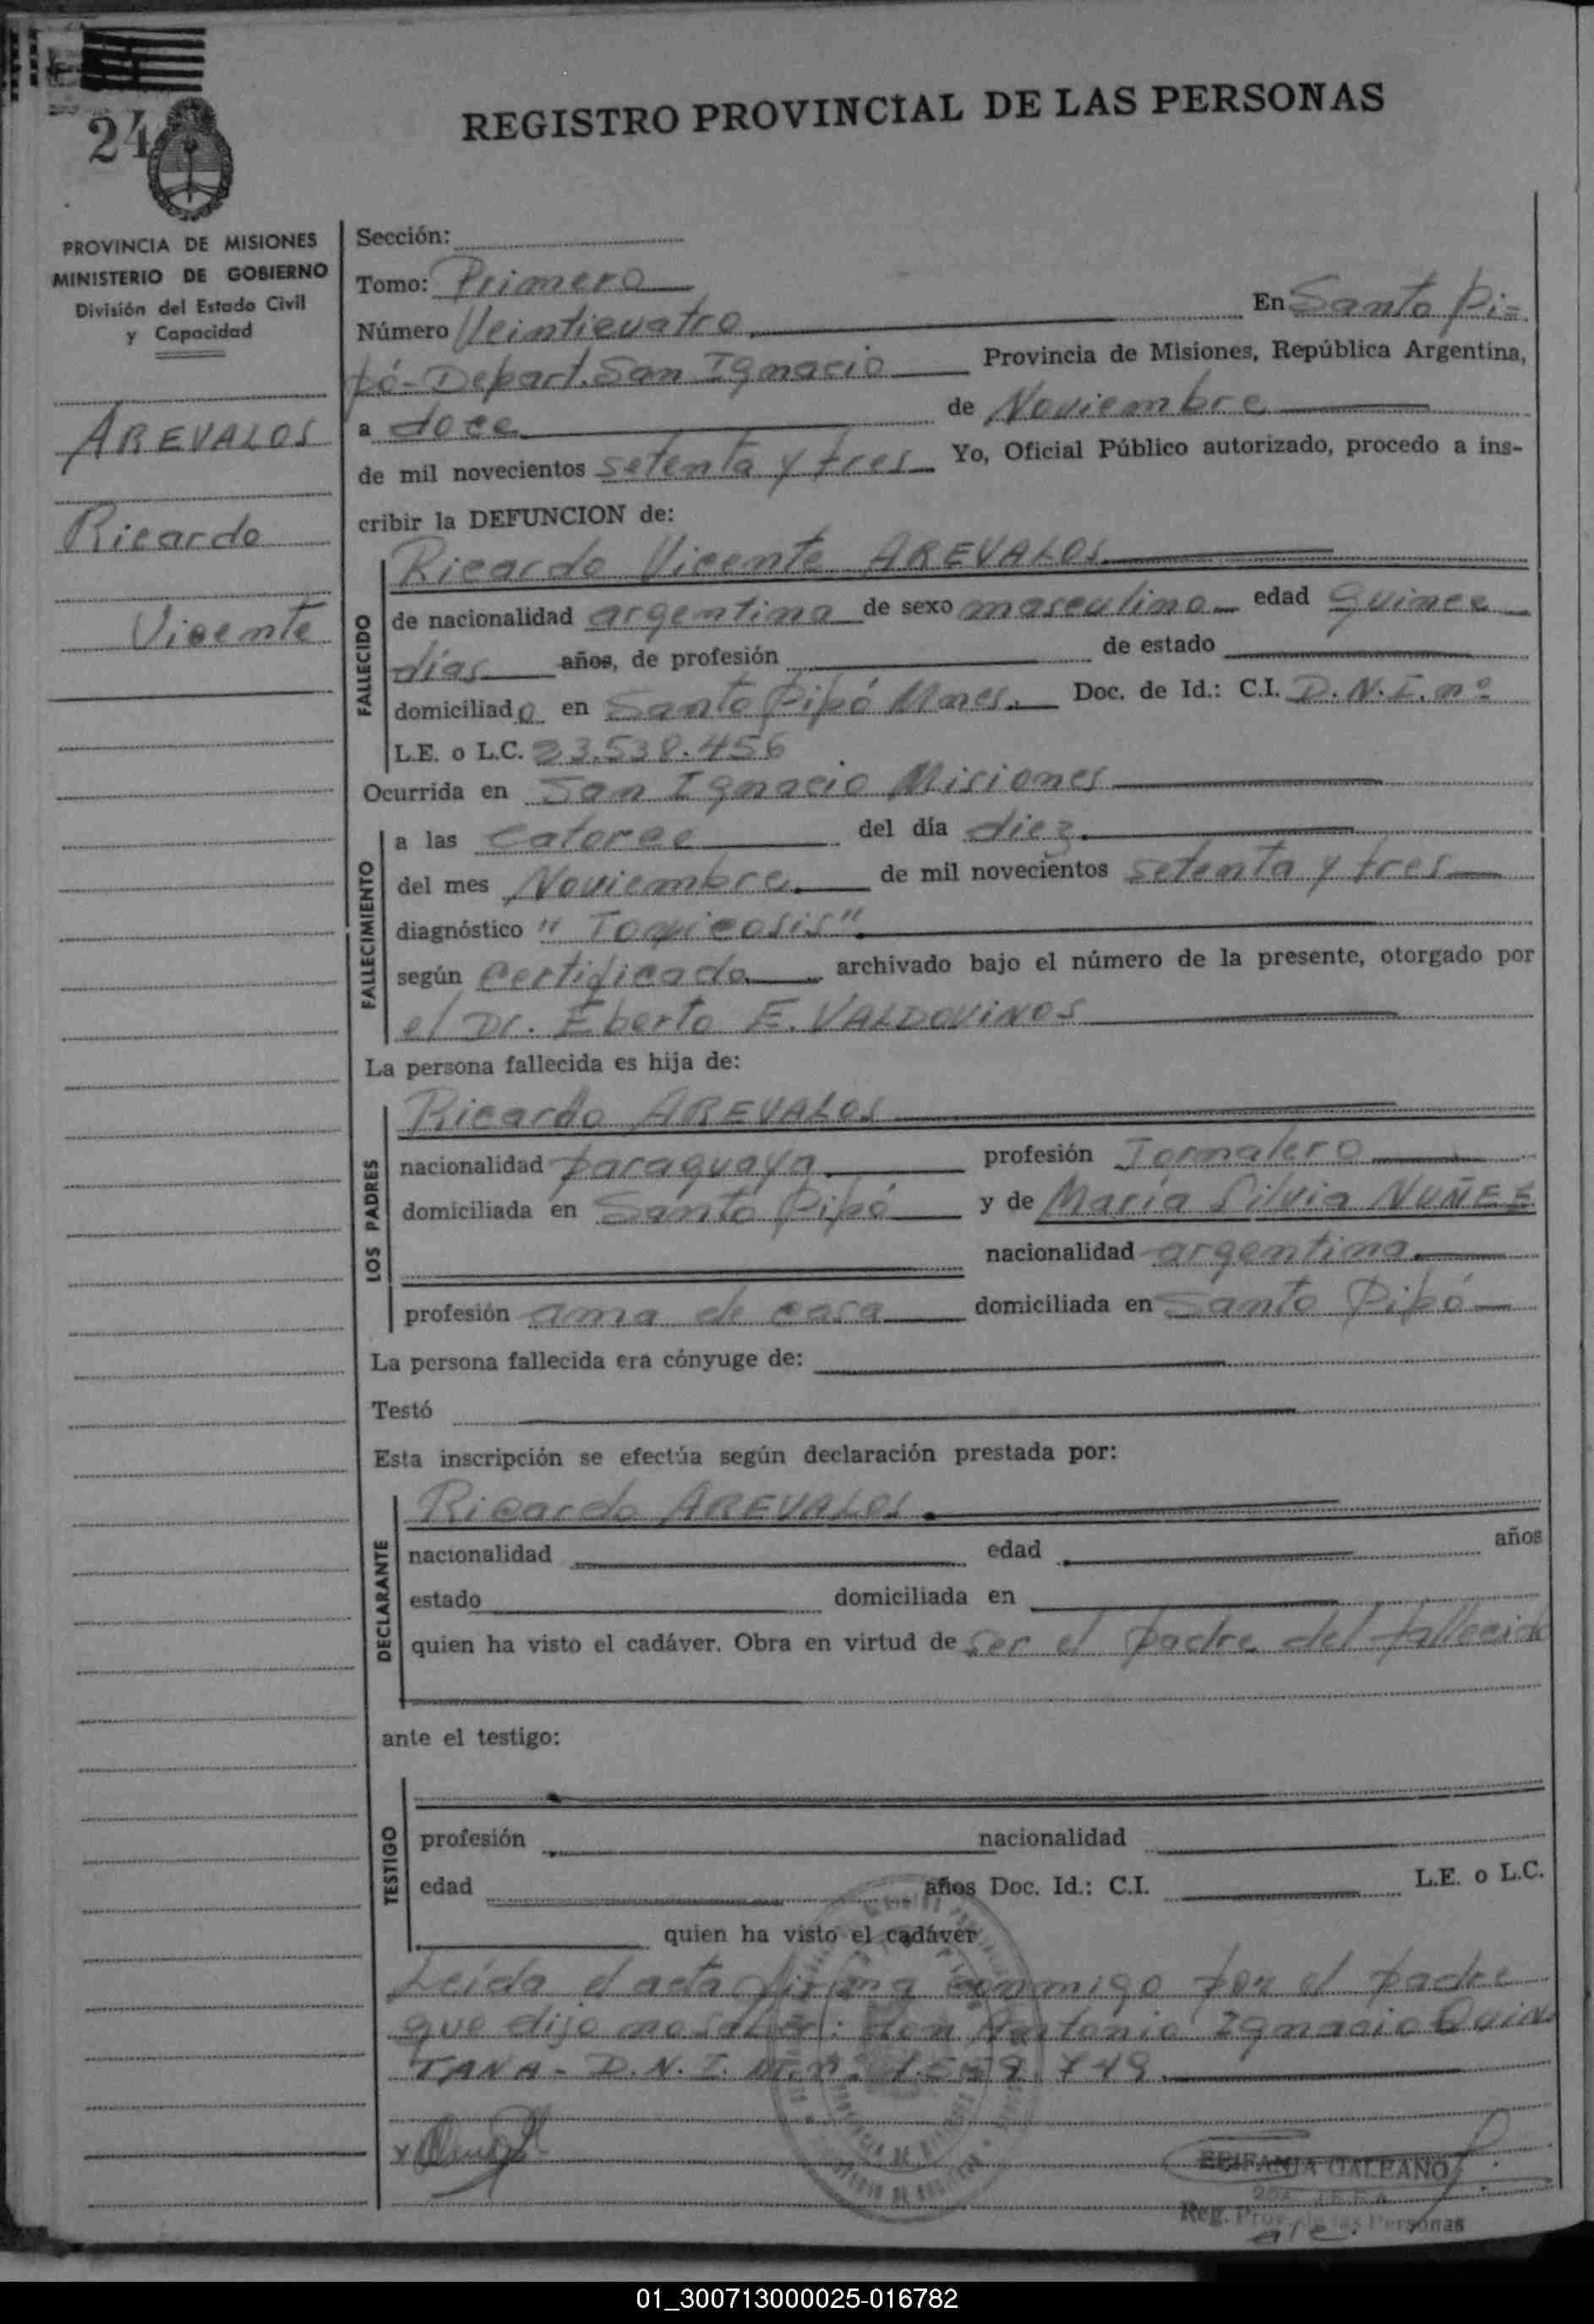 24
REGISTRO PROVINCIAL DE LAS PERSONAS
PROVINCIA DE MISIONES
MINISTERIO DE GOBIERNO
División del Estado Civil
y Capacidad
AREVALOS
Ricardo
Vicente
Sección:
Tomo: Primero
Número Veinticuatro En Santo Pi=
pó-Depart. San Ignacio Provincia de Misiones, República Argentina,
a doce de Noviembre
de mil novecientos setenta y tres Yo, Oficial Público autorizado, procedo a ins-
cribir la DEFUNCION de:
Ricardo Vicente AREVALOS
FALLECIDO
de nacionalidad argentina de sexo masculino edad Quince
días años, de profesión de estado
domiciliado en Santo Pipó Mnes. Doc. de Id.: C.I. D.N.I. nº
L.E. o L.C. 23.538.456
Ocurrida en San Ignacio Misiones
FALLECIMIENTO
a las catorce del día diez
del mes Noviembre de mil novecientos setenta y tres
diagnóstico " Toxicosis"
según certificado archivado bajo el número de la presente, otorgado por
el Dr. Eberto E. VALDOVINOS
La persona fallecida es hija de:
LOS PADRES
Ricardo AREVALOS
nacionalidad paraguaya profesión Jornalero
domiciliada en Santo Pipó y de María Silvia NUÑEZ
nacionalidad argentina
profesión ama de casa domiciliada en Santo Pipó
La persona fallecida era cónyuge de:
Testó
Esta inscripción se efectúa según declaración prestada por:
DECLARANTE
Ricardo AREVALOS
nacionalidad edad años
estado domiciliada en
quien ha visto el cadáver. Obra en virtud de ser el padre del fallecido
ante el testigo:
TESTIGO
profesión nacionalidad
edad años Doc. Id.: C.I. L.E. o L.C.
quien ha visto el cadáver
Leída el acta firma conmigo por el padre
que dijo no saber: don Antonio Ignacio Quin
TANA - D.N.I. M. nº 749
EPIFANIA GALEANO
Reg. Prov. de las Personas
01_300713000025-016782